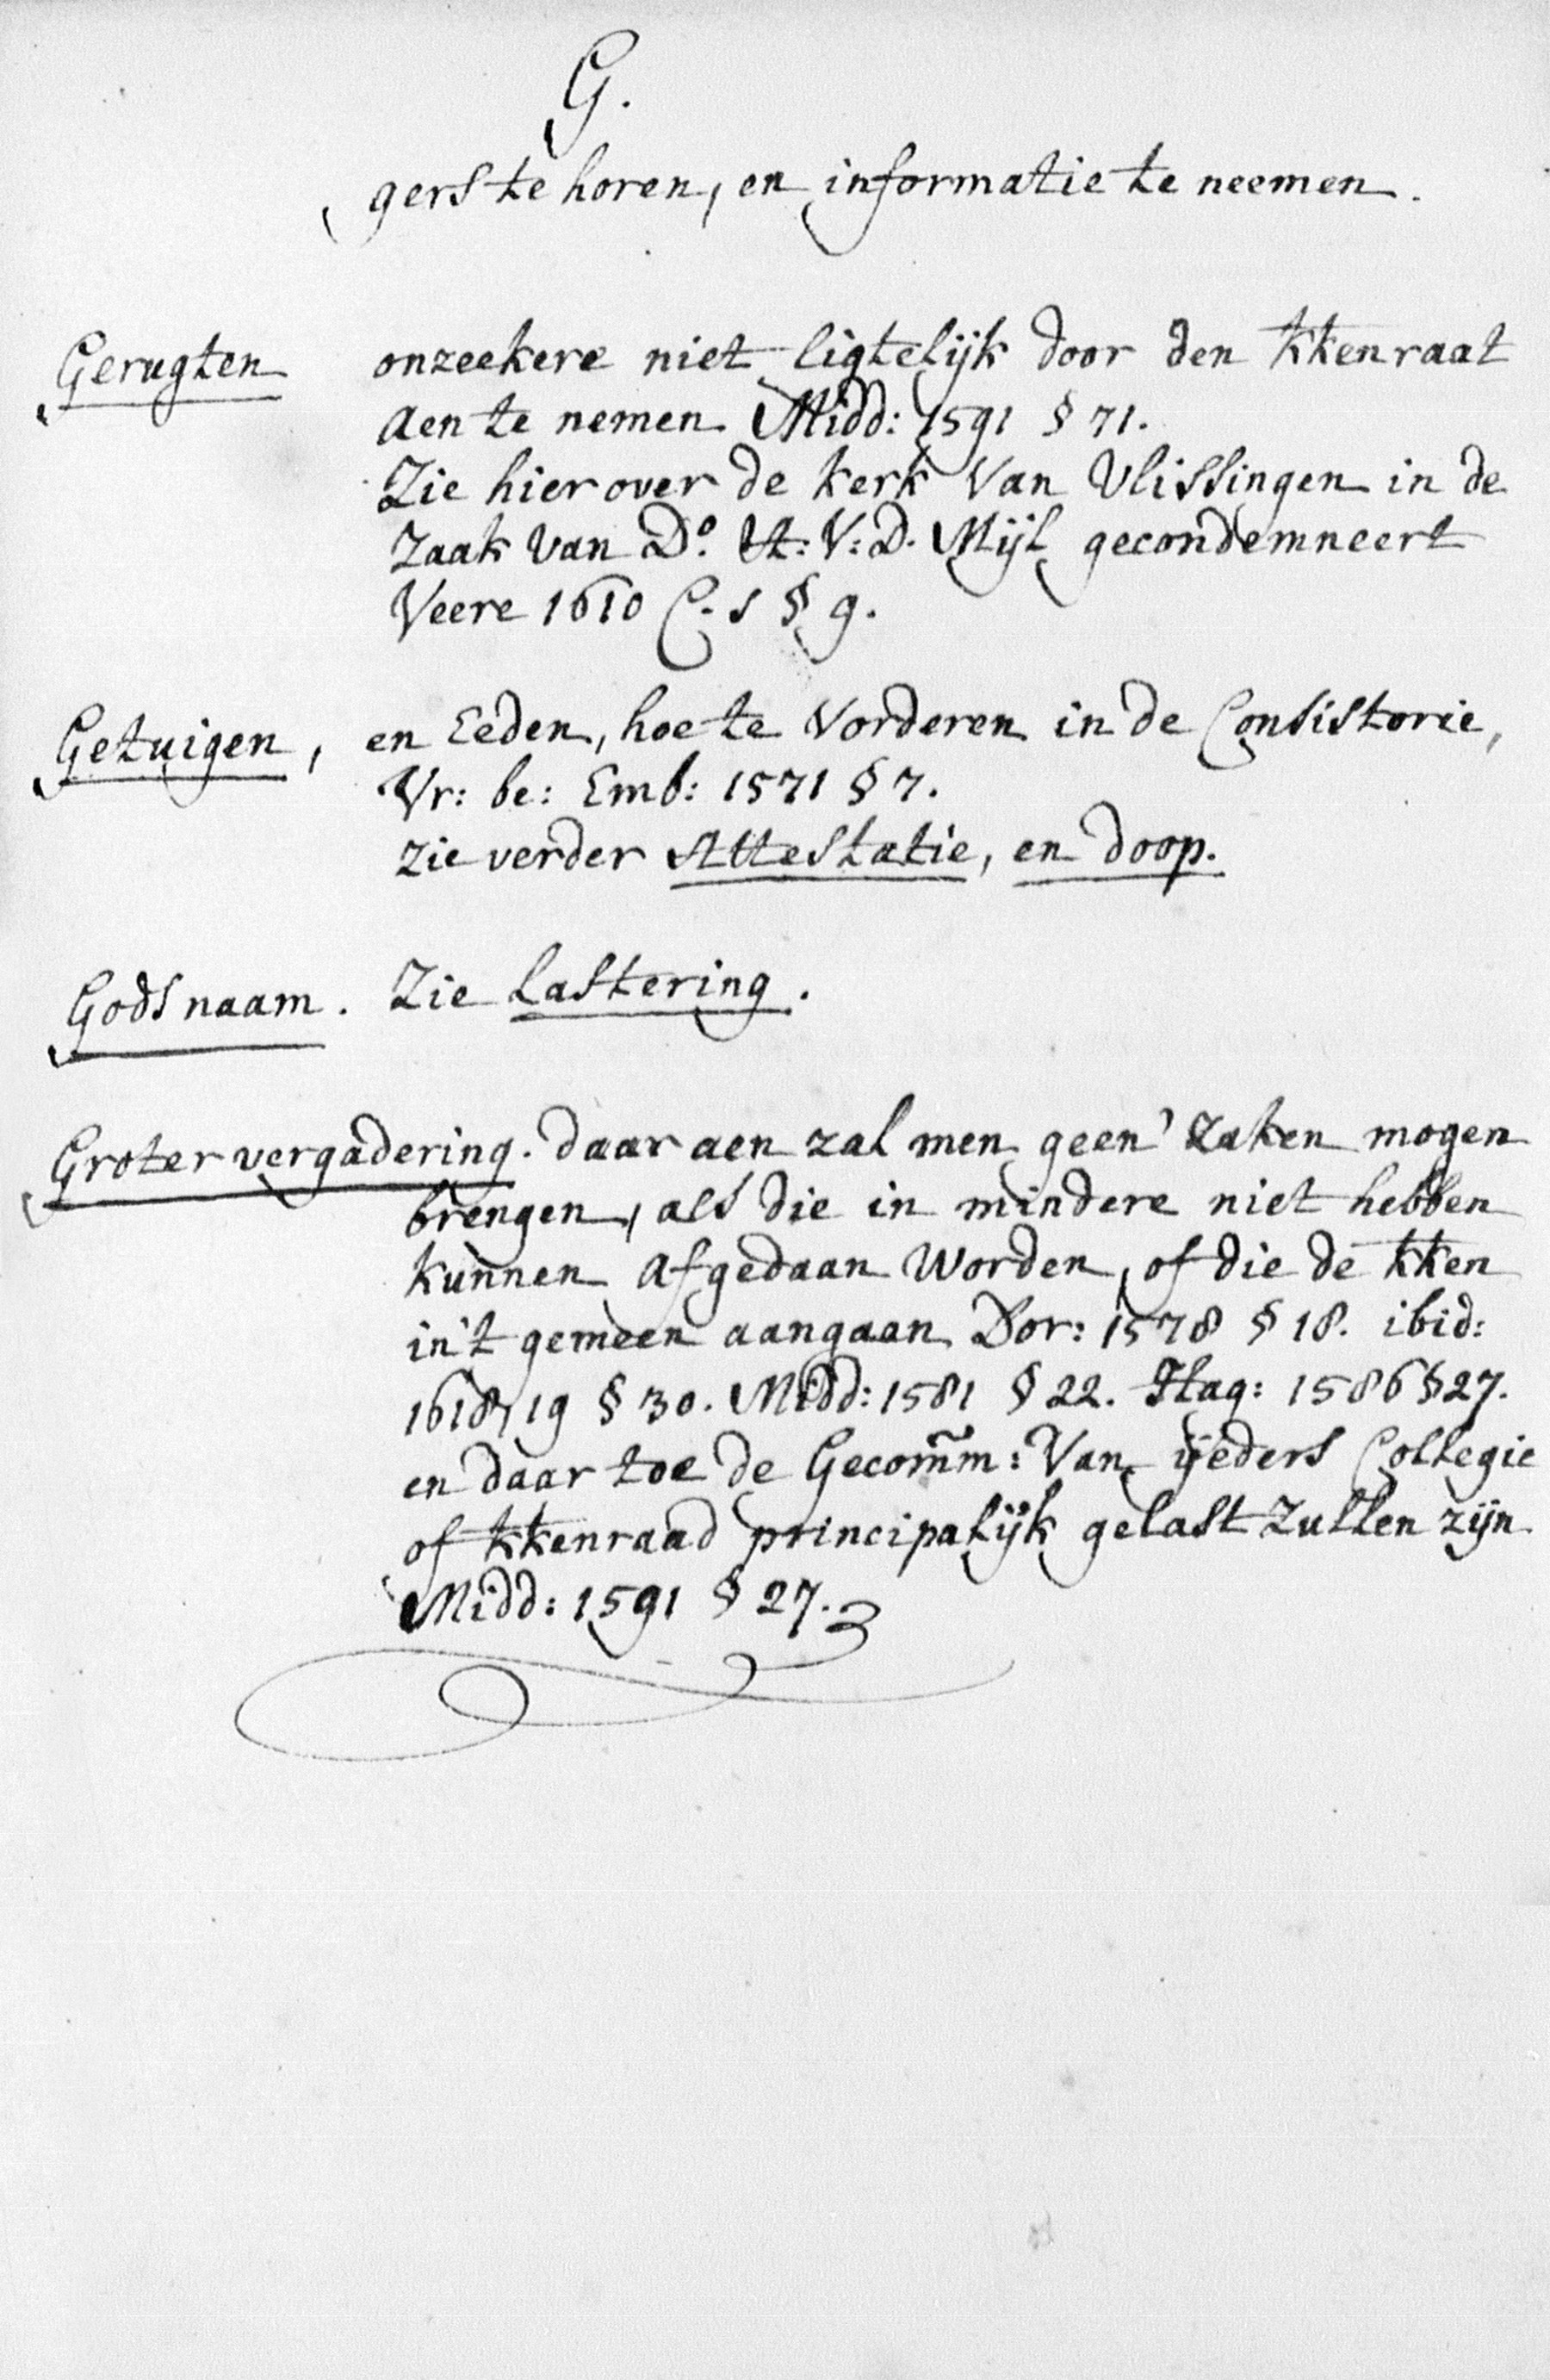 G.
gers te horen, en informatie te neemen.
Gerugten onzeekere niet ligtelijk door den kkenraat
aen te nemen. Midd: 1591 § 71.
Zie hier over de kerk van Vlissingen in de
zaak van Do. A: V: D. Mijl gecondemneert
Veere 1610 C. s § 9.
Getuigen, en Eeden, hoe te vorderen in de Consistorie,
Vr: be: Emb: 1571 § 7.
zie verder Attestatie, en doop.
Gods naam. Zie Lastering.
Groter vergadering. daar aen zal men geen' zaken mogen
brengen, als die in mindere niet hebben
kunnen afgedaan worden, of die de kken
in't gemeen aangaan Dor: 1578 § 18. ibid:
1618,19 § 30. Midd: 1581 § 22. Hag: 1586 § 27.
en daar toe de Gecom̃m: van ijeders Collegie
of kkenraad principalijk gelast zullen zijn
Midd: 1591 § 27.